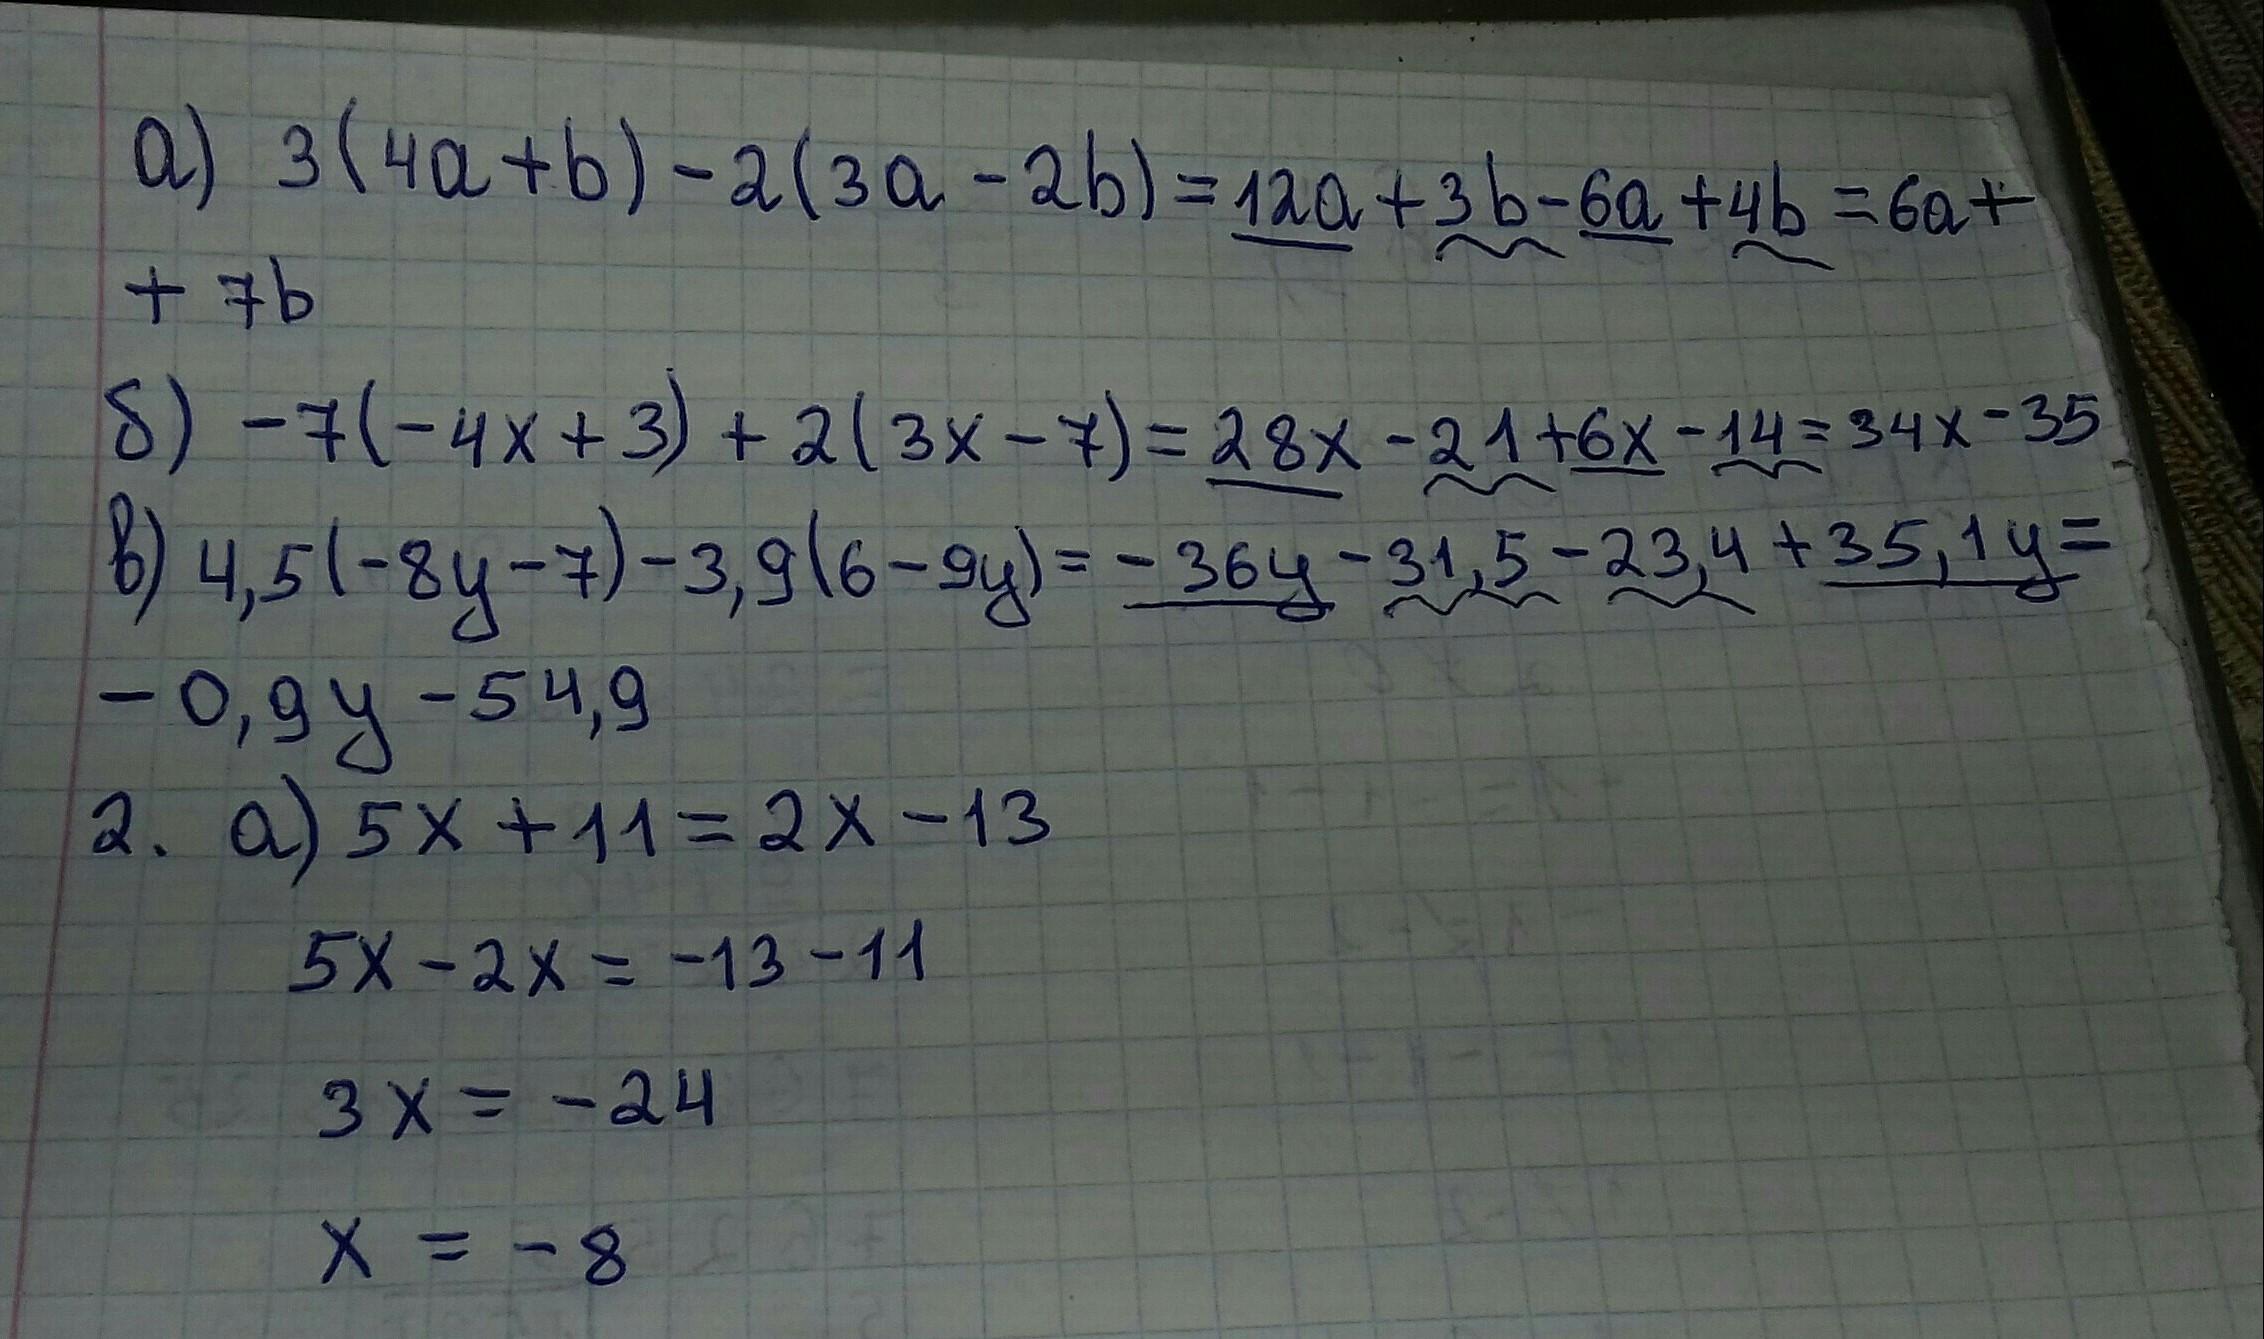 а) 3(4a+b)-2(3a-2b)=12a+3b-6a+4b=6a+
+7b
б) -7(-4x+3)+2(3x-7)=28x-21+6x-14=34x-35
в) 4,5(-8y-7)-3,9(6-9y)=-36y-31,5-23,4+35,1y=
-0,9y-54,9
2. а) 5x+11=2x-13
5x-2x=-13-11
3x=-24
x=-8